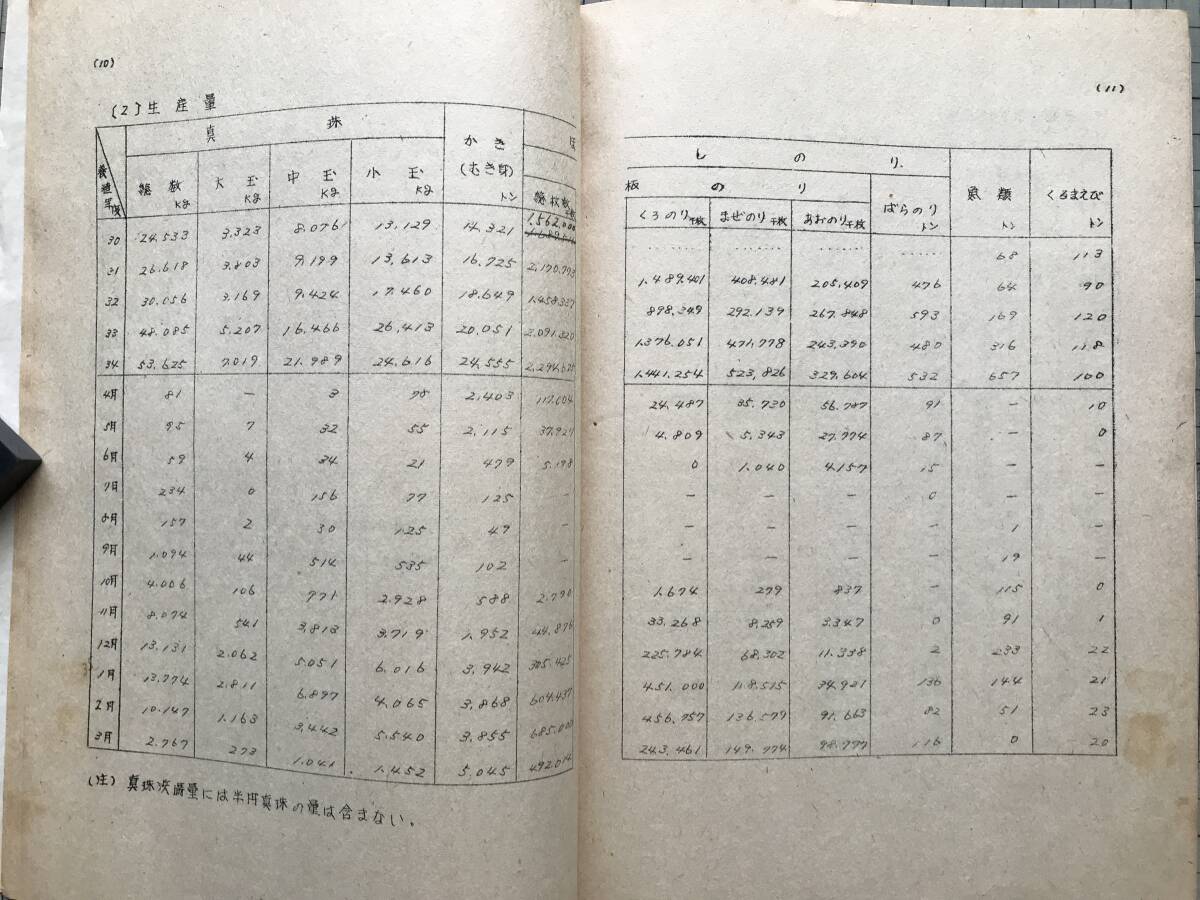 (10)
(2)生産量
養殖年度 真珠 かき(むき身)トン
総数Kg 大玉Kg 中玉Kg 小玉Kg 総枚数千枚
30 24.533 3.323 8.076 13.129 14.321 1.562.000
31 26.618 3.803 9.199 13.613 16.725 2.170.773
32 30.056 3.169 9.424 17.460 18.649 1.458.337
33 48.085 5.207 16.466 26.413 20.051 2.091.220
34 53.625 7.019 21.989 24.616 24.555 2.294.675
4月 81 — 3 78 2.403 117.004
5月 95 7 32 55 2.115 37.927
6月 59 4 34 21 479 5.198
7月 234 0 156 77 125 —
8月 157 2 30 125 47 —
9月 1.094 44 514 535 102 —
10月 4.006 106 971 2.928 588 2.790
11月 8.074 541 3.813 3.719 1.952 44.876
12月 13.131 2.062 5.051 6.016 3.942 305.425
1月 13.774 2.811 6.897 4.065 3.868 604.437
2月 10.147 1.163 3.442 5.540 3.855 685.000
3月 2.767 273 1.041 1.452 5.045 492.014
(注)真珠浜揚量には半円真珠の量は含まない。
(11)
しのり 魚類トン くるまえびトン
板のり ばらのりトン
くろのり千枚 まぜのり千枚 あおのり千枚
…… …… …… …… 68 113
1.489.401 408.481 205.409 476 64 90
898.349 292.139 267.848 593 169 120
1.376.051 471.778 243.390 480 316 118
1.441.254 523,826 329.604 532 657 100
24.487 35.730 56.787 91 — 10
4.809 5.343 27.774 87 — 0
0 1.040 4.157 15 — —
— — — 0 — —
— — — — 1 —
— — — — 19 —
1.674 279 837 — 115 0
33.268 8.259 3.347 0 91 1
225.784 68.302 11.338 2 233 22
451.000 118.515 34.921 136 144 21
456.757 136.579 91.663 82 51 23
243.461 149.774 98.777 116 0 20